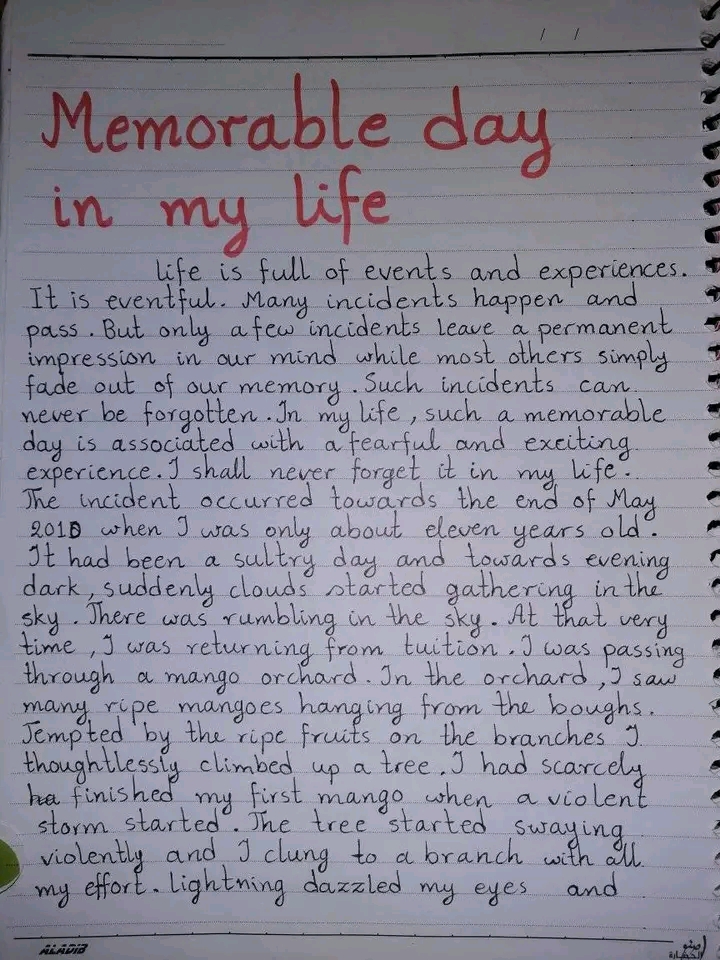 / /
Memorable day
in my life
life is full of events and experiences.
It is eventful. Many incidents happen and
pass. But only a few incidents leave a permanent
impression in our mind while most others simply
fade out of our memory. Such incidents can
never be forgotten. In my life, such a memorable
day is associated with a fearful and exciting
experience. I shall never forget it in my life.
The incident occurred towards the end of May
2010 when I was only about eleven years old.
It had been a sultry day and towards evening
dark, suddenly clouds started gathering in the
sky. There was rumbling in the sky. At that very
time, I was returning from tuition. I was passing
through a mango orchard. In the orchard, I saw
many ripe mangoes hanging from the boughs.
Tempted by the ripe fruits on the branches I
thoughtlessly climbed up a tree. I had scarcely
finished my first mango when a violent
storm started. The tree started swaying
violently and I clung to a branch with all
my effort. lightning dazzled my eyes and
ALADIB